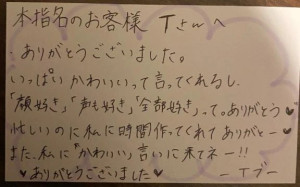 本指名のお客様 Tさんへ
ありがとうございました。
いっぱいかわいいって言ってくれるし、
「顔好き」「声も好き」「全部好き」って。ありがとう♥
忙しいのに私に時間作ってくれてありがとー♥
また、私に"かわいい"言いに来てネー!!
♥ありがとうございました♥